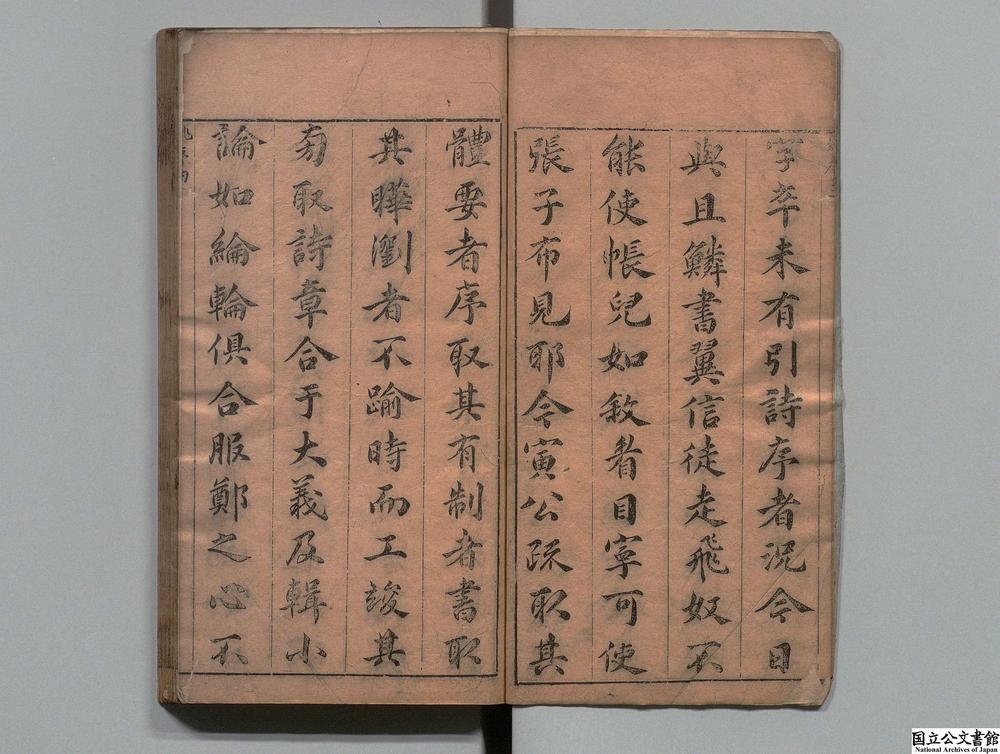 字卒未有引詩序者況今日
與且鱗書翼信徒走飛奴不
能使帳兒如敘者目寧可使
張子布見耶今寅公疏取其
體要者序取其有制者書取
其曄瀏者不踰時而工竣其
旁取詩章合于大義及輯小
論如綸輪俱合服鄭之心不
国立公文書館
National Archives of Japan